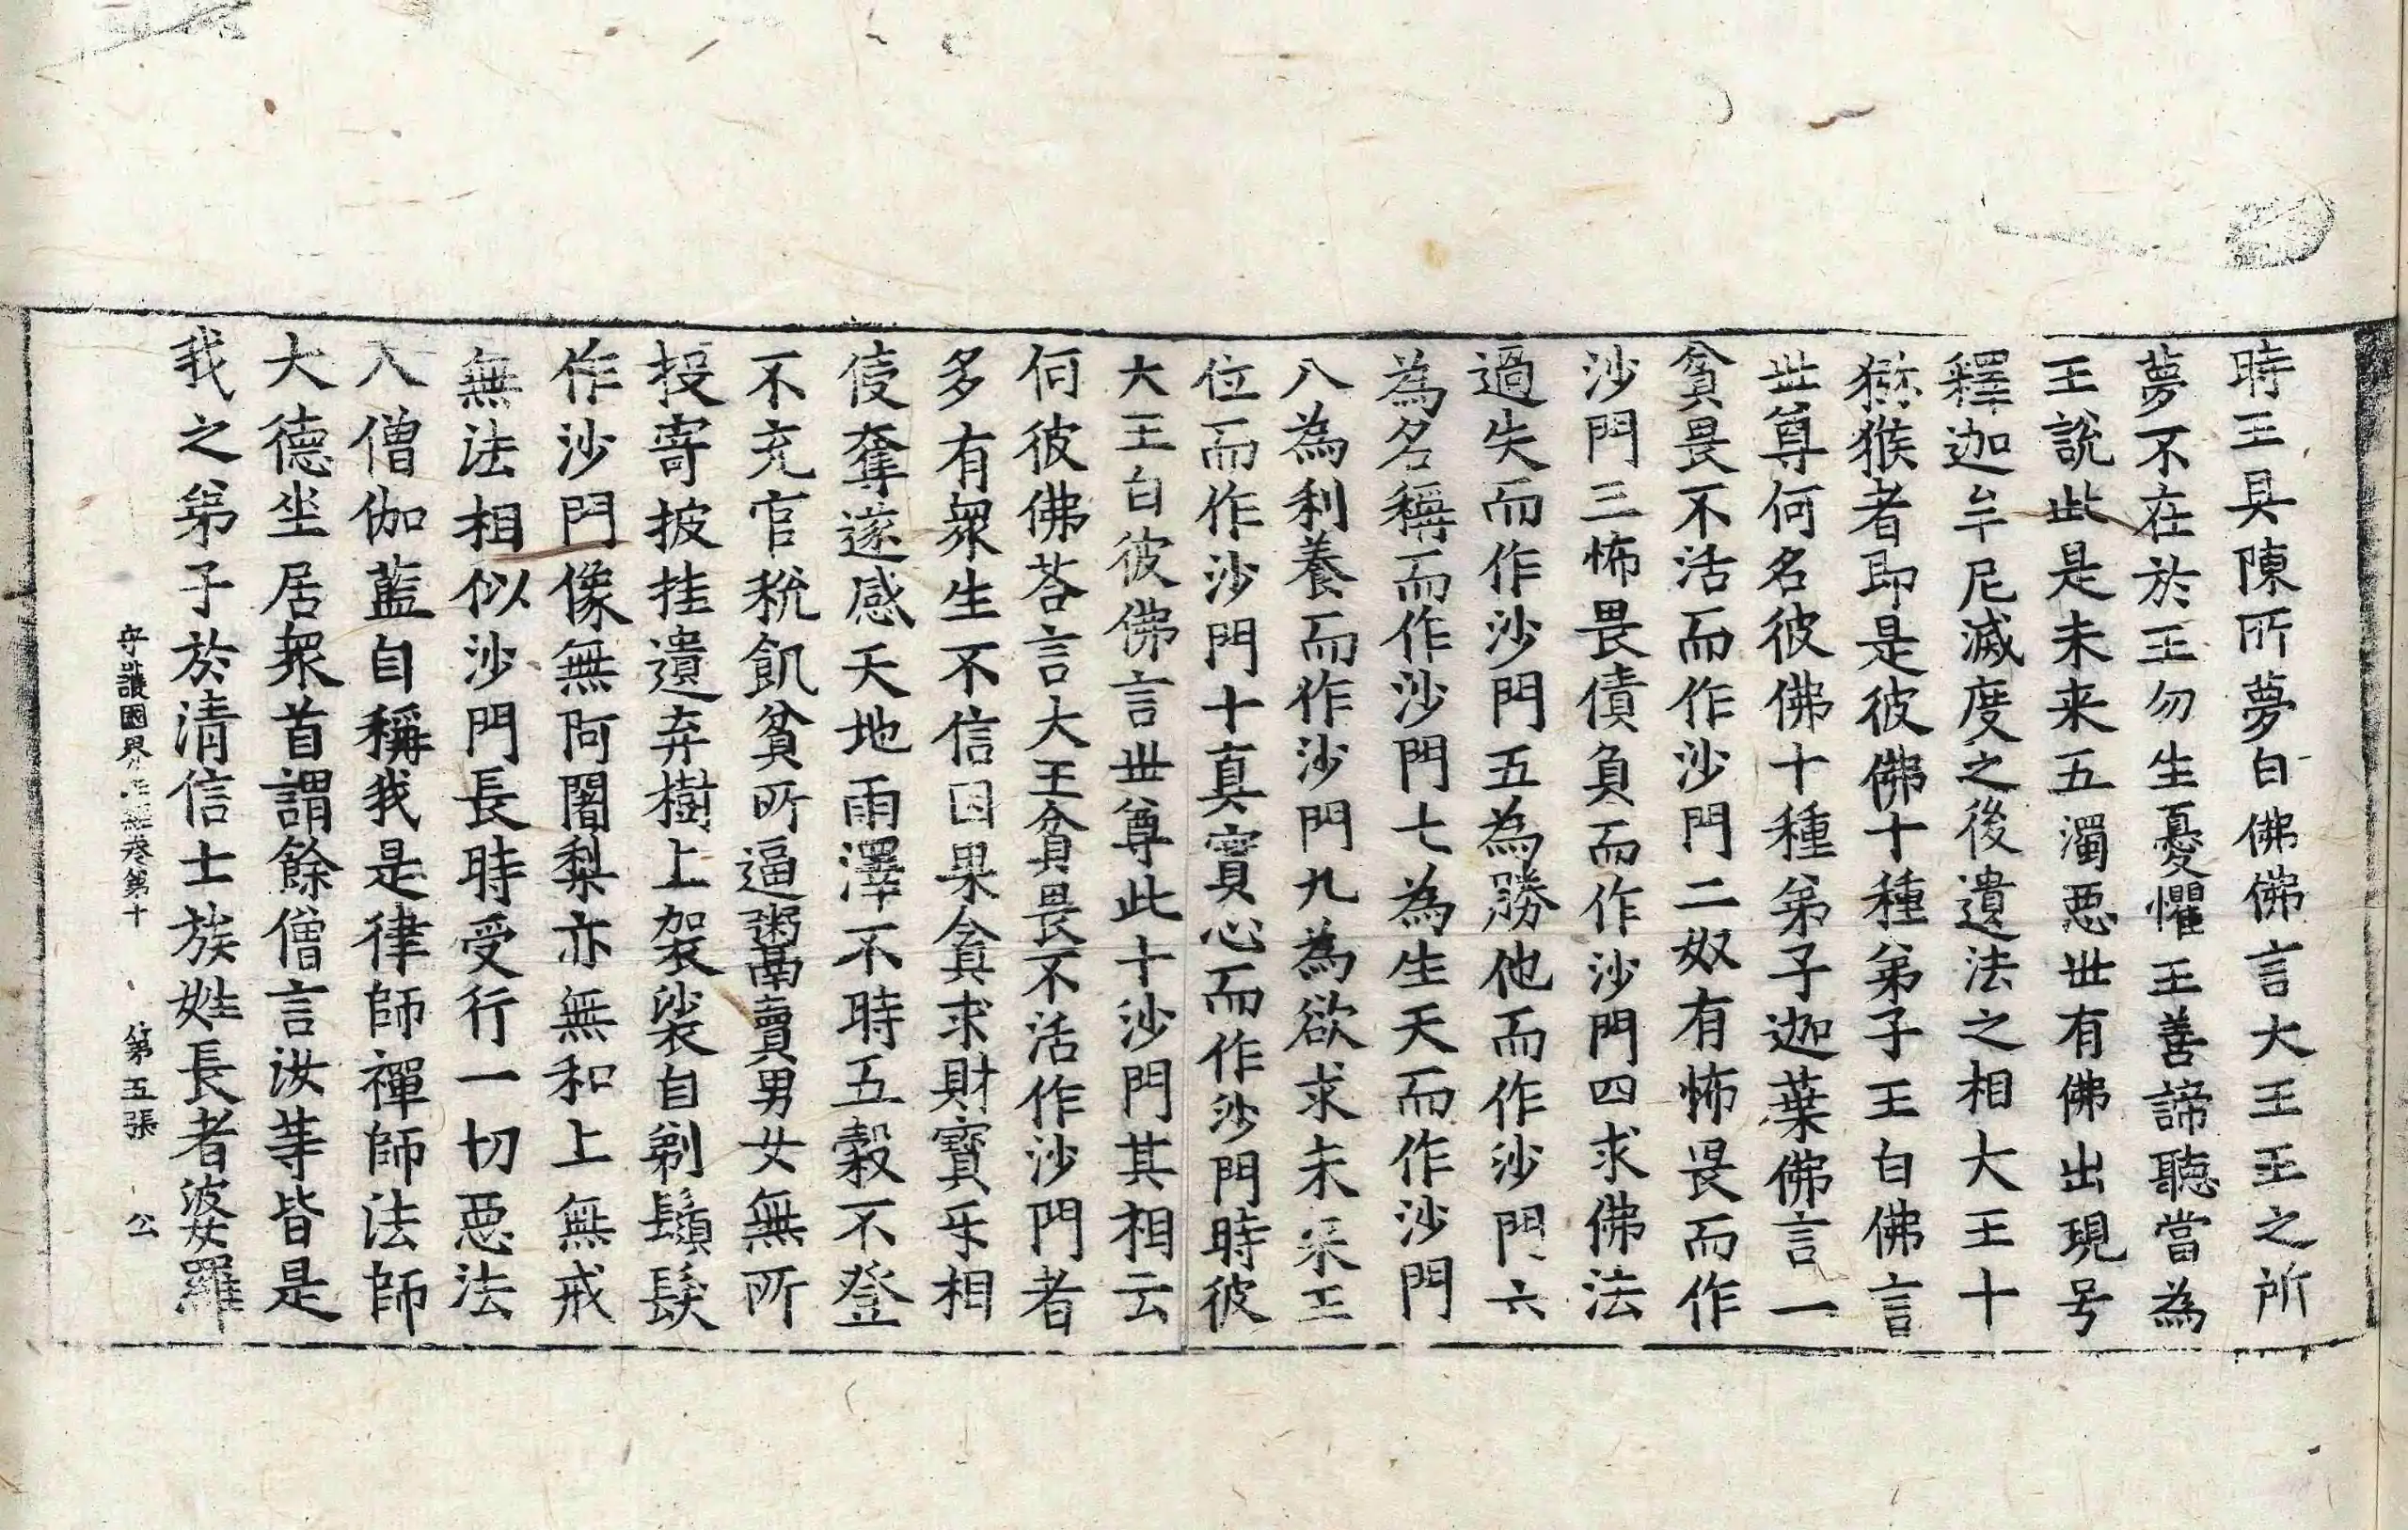 時王具陳所夢白佛佛言大王王之所
夢不在於王勿生憂懼王善諦聽當為
王說此是未来五濁惡世有佛出現号
釋迦牟尼滅度之後遺法之相大王十
獼猴者即是彼佛十種弟子王白佛言
世尊何名彼佛十種弟子迦葉佛言一
貧畏不活而作沙門二奴有怖畏而作
沙門三怖畏債負而作沙門四求佛法
過失而作沙門五為勝他而作沙門六
為名稱而作沙門七為生天而作沙門
八為利養而作沙門九為欲求未来王
位而作沙門十真實心而作沙門時彼
大王白彼佛言世尊此十沙門其相云
何彼佛荅言大王貧畏不活作沙門者
多有衆生不信因果貪求財寶互相
侵奪遂感天地雨澤不時五穀不登
不充官稅飢貧所逼粥鬻賣男女無所
投寄披挂遺弃樹上袈裟自剃鬚髮
作沙門像無阿闍梨亦無和上無戒
無法相似沙門長時受行一切惡法
入僧伽藍自稱我是律師禪師法師
大德坐居衆首謂餘僧言汝等皆是
我之弟子於清信士族姓長者婆羅
守護國界主經卷第十 第五張 公